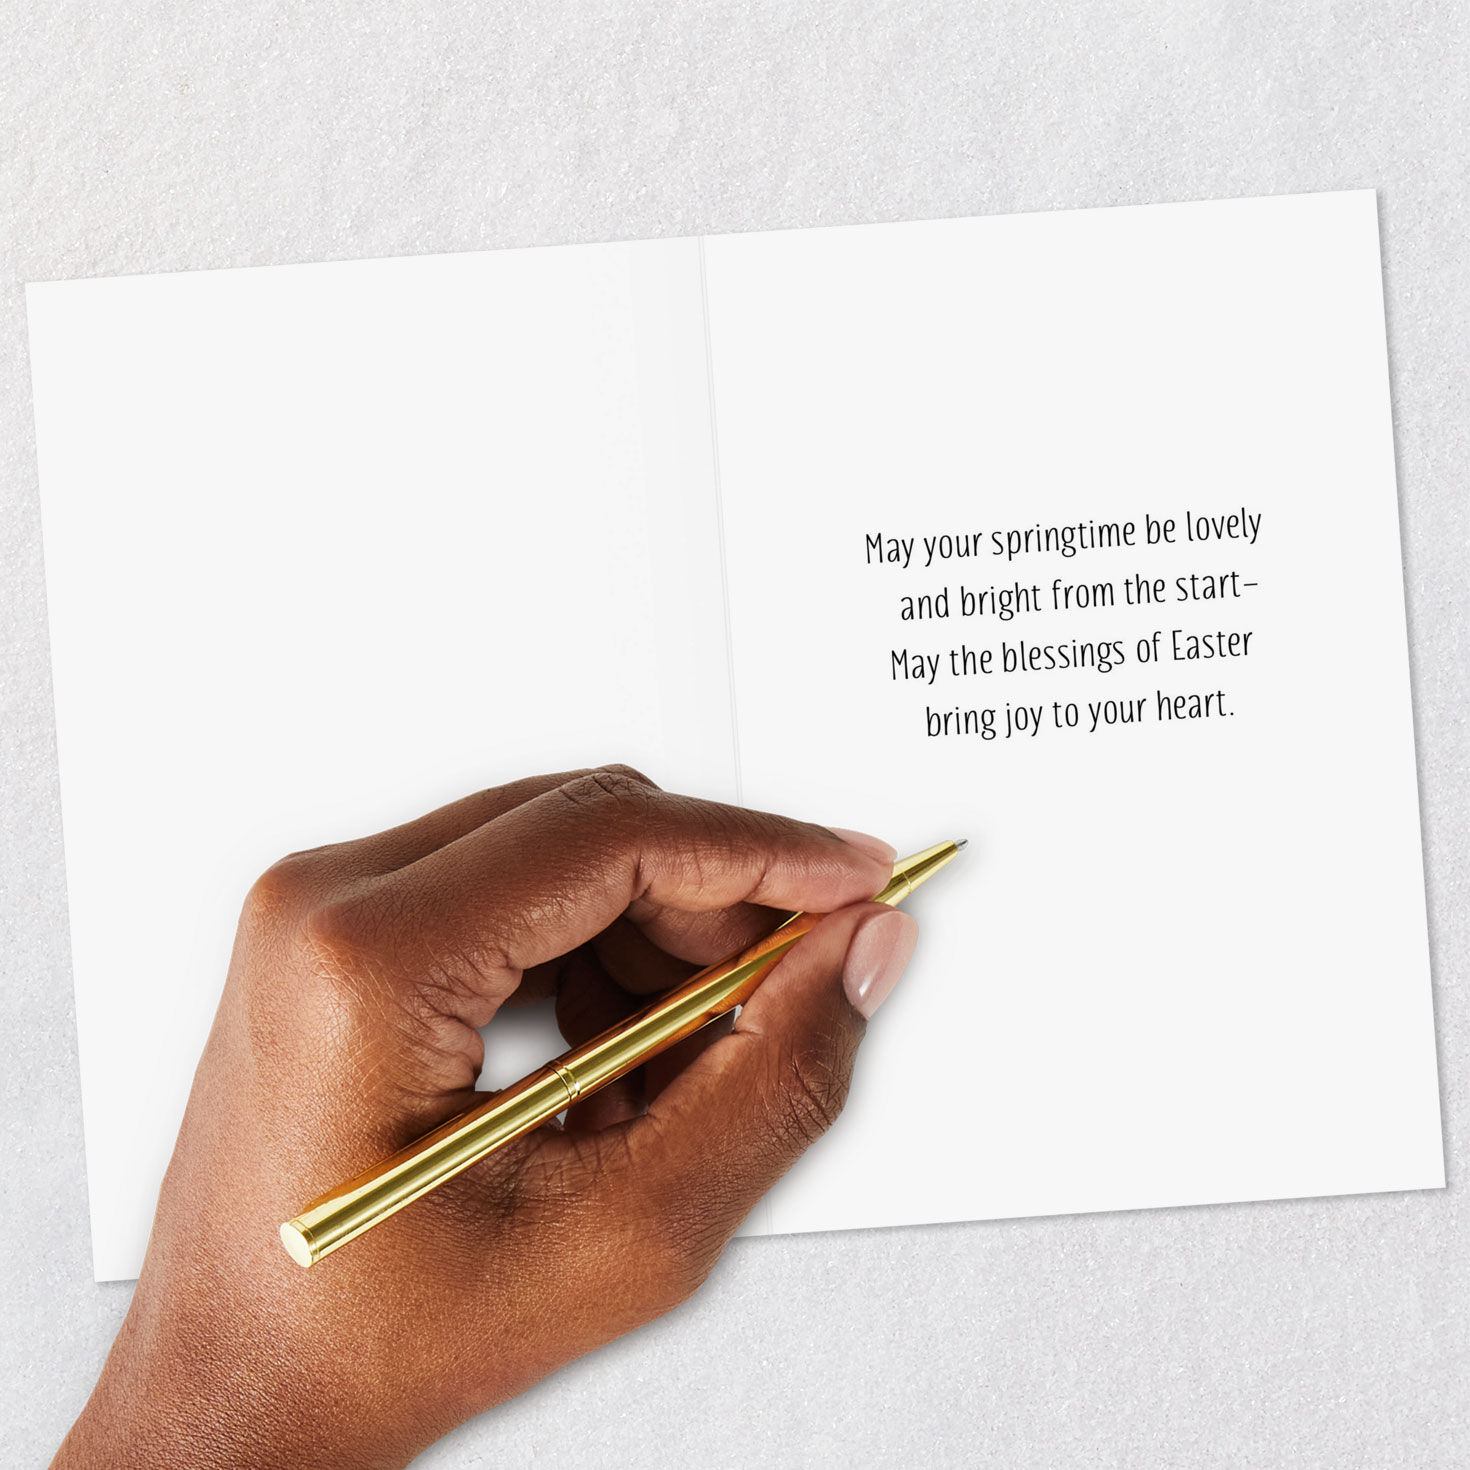 May your springtime be lovely
and bright from the start–
May the blessings of Easter
bring joy to your heart.